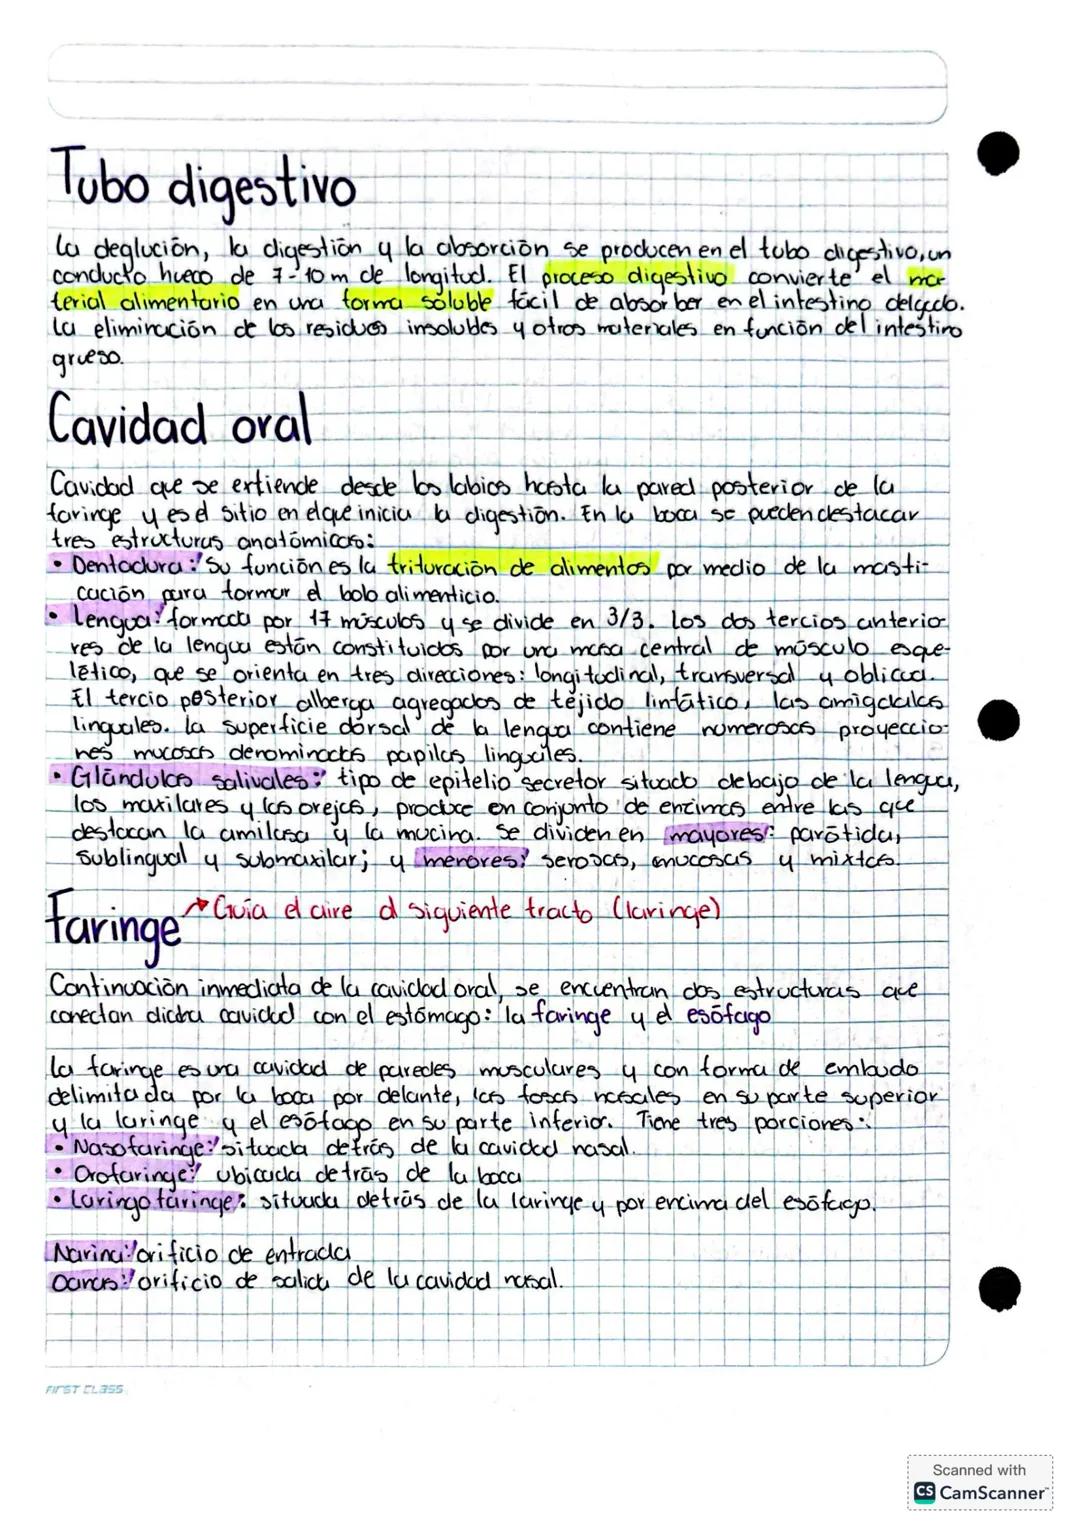 Tubo digestivo
La deglución, la digestión y la absorción se producen en el tubo digestivo, un
conducto hueco de 7-10 m de longitud. El proceso digestivo convierte el ma-
terial alimentario en una forma soluble fácil de absorber en el intestino delgado.
La eliminación de los residuos insolubles y otros materiales en función del intestino
grueso.
Cavidad oral
Cavidad que se extiende desde los labios hasta la pared posterior de la
faringe y es el sitio en el que inicia la digestión. En la boca se pueden destacar
tres estructuras anatómicas:
• Dentadura: Su función es la trituración de alimentos por medio de la masti-
cación para formar el bolo alimenticio.
• Lengua: formada por 17 músculos y se divide en 3/3. Los dos tercios anterio
res de la lengua están constituidos por una masa central de músculo esque-
lético, que se orienta en tres direcciones: longitudinal, transversal y oblicua.
El tercio posterior alberga agregados de tejido linfático, las amígdalas
linguales. La superficie dorsal de la lengua contiene numerosas proyeccio-
nes mucosas denominadas papilas linguales.
• Glándulas salivales: tipo de epitelio secretor situado debajo de la lengua,
los maxilares y las orejas, produce en conjunto de enzimas entre las que
destacan la amilasa y la mucina. Se dividen en mayores: parótida,
sublingual y submaxilar; y menores: serosas, mucosas y mixtas.
Faringe → Guía el aire al siguiente tracto (laringe)
Continuación inmediata de la cavidad oral, se encuentran dos estructuras que
conectan dicha cavidad con el estómago: la faringe y el esófago
La faringe es una cavidad de paredes musculares y con forma de embudo
delimitada por la boca por delante, las fosas nasales en su parte superior
y la laringe y el esófago en su parte inferior. Tiene tres porciones:
• Nasofaringe: situada detrás de la cavidad nasal.
• Orofaringe: ubicada detrás de la boca
• Laringofaringe: situada detrás de la laringe y por encima del esófago.
Narina: orificio de entrada
Oanas: orificio de salida de la cavidad nasal.
FIRST CLASS
Scanned with
CS CamScanner